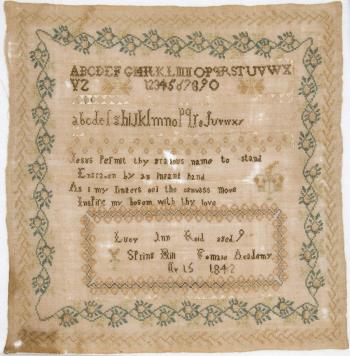 ABCDEFGHIJKLMNOPQRSTUVWX
YZ 1234567890
abcdefghijklmnopqrstuvwxy
Jesus Permit thy gracious name to stand
Engraven by an infant hand
As my fingers oer the canvass move
Inspire my bosom with thy love
Lucy Ann Reid aged 9
Spring Hill Academy
15 1842